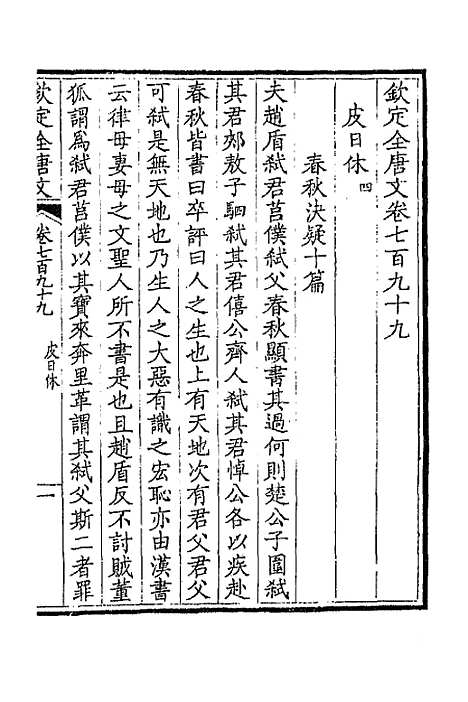 欽定全唐文卷七百九十九
皮日休四
春秋決疑十篇
夫趙盾弒君莒僕弒父春秋顯書其過何則楚公子圍弒
其君郟敖子駟弒其君僖公齊人弒其君悼公各以疾赴
春秋皆書曰卒評曰人之生也上有天地次有君父君父
可弒是無天地也乃生人之大惡有識之宏恥亦由漢書
云律母妻母之文聖人所不書是也且趙盾反不討賊董
狐謂為弒君莒僕以其寶來奔里革謂其弒父斯二者罪
欽定全唐文
卷七百九十九
皮日休
一